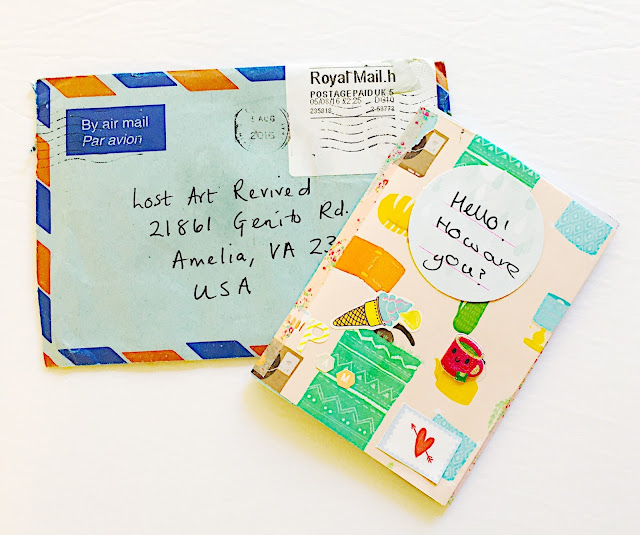 By air mail
Par avion
AUG
2016
Royal Mail.h
POSTAGE PAID UK 5
05/08/16 £2.25
235818
Lost Art Revived
21861 Genito Rd.
Amelia, VA 23
USA
Hello!
How are
you?